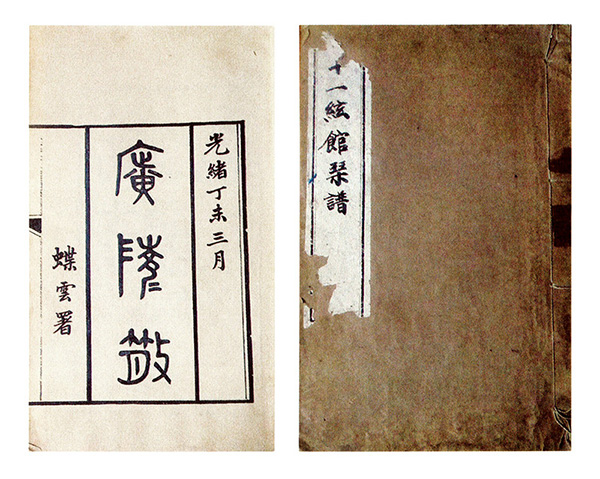 光緒丁未三月
廣陵散
蝶雲署
十一絃館琹譜